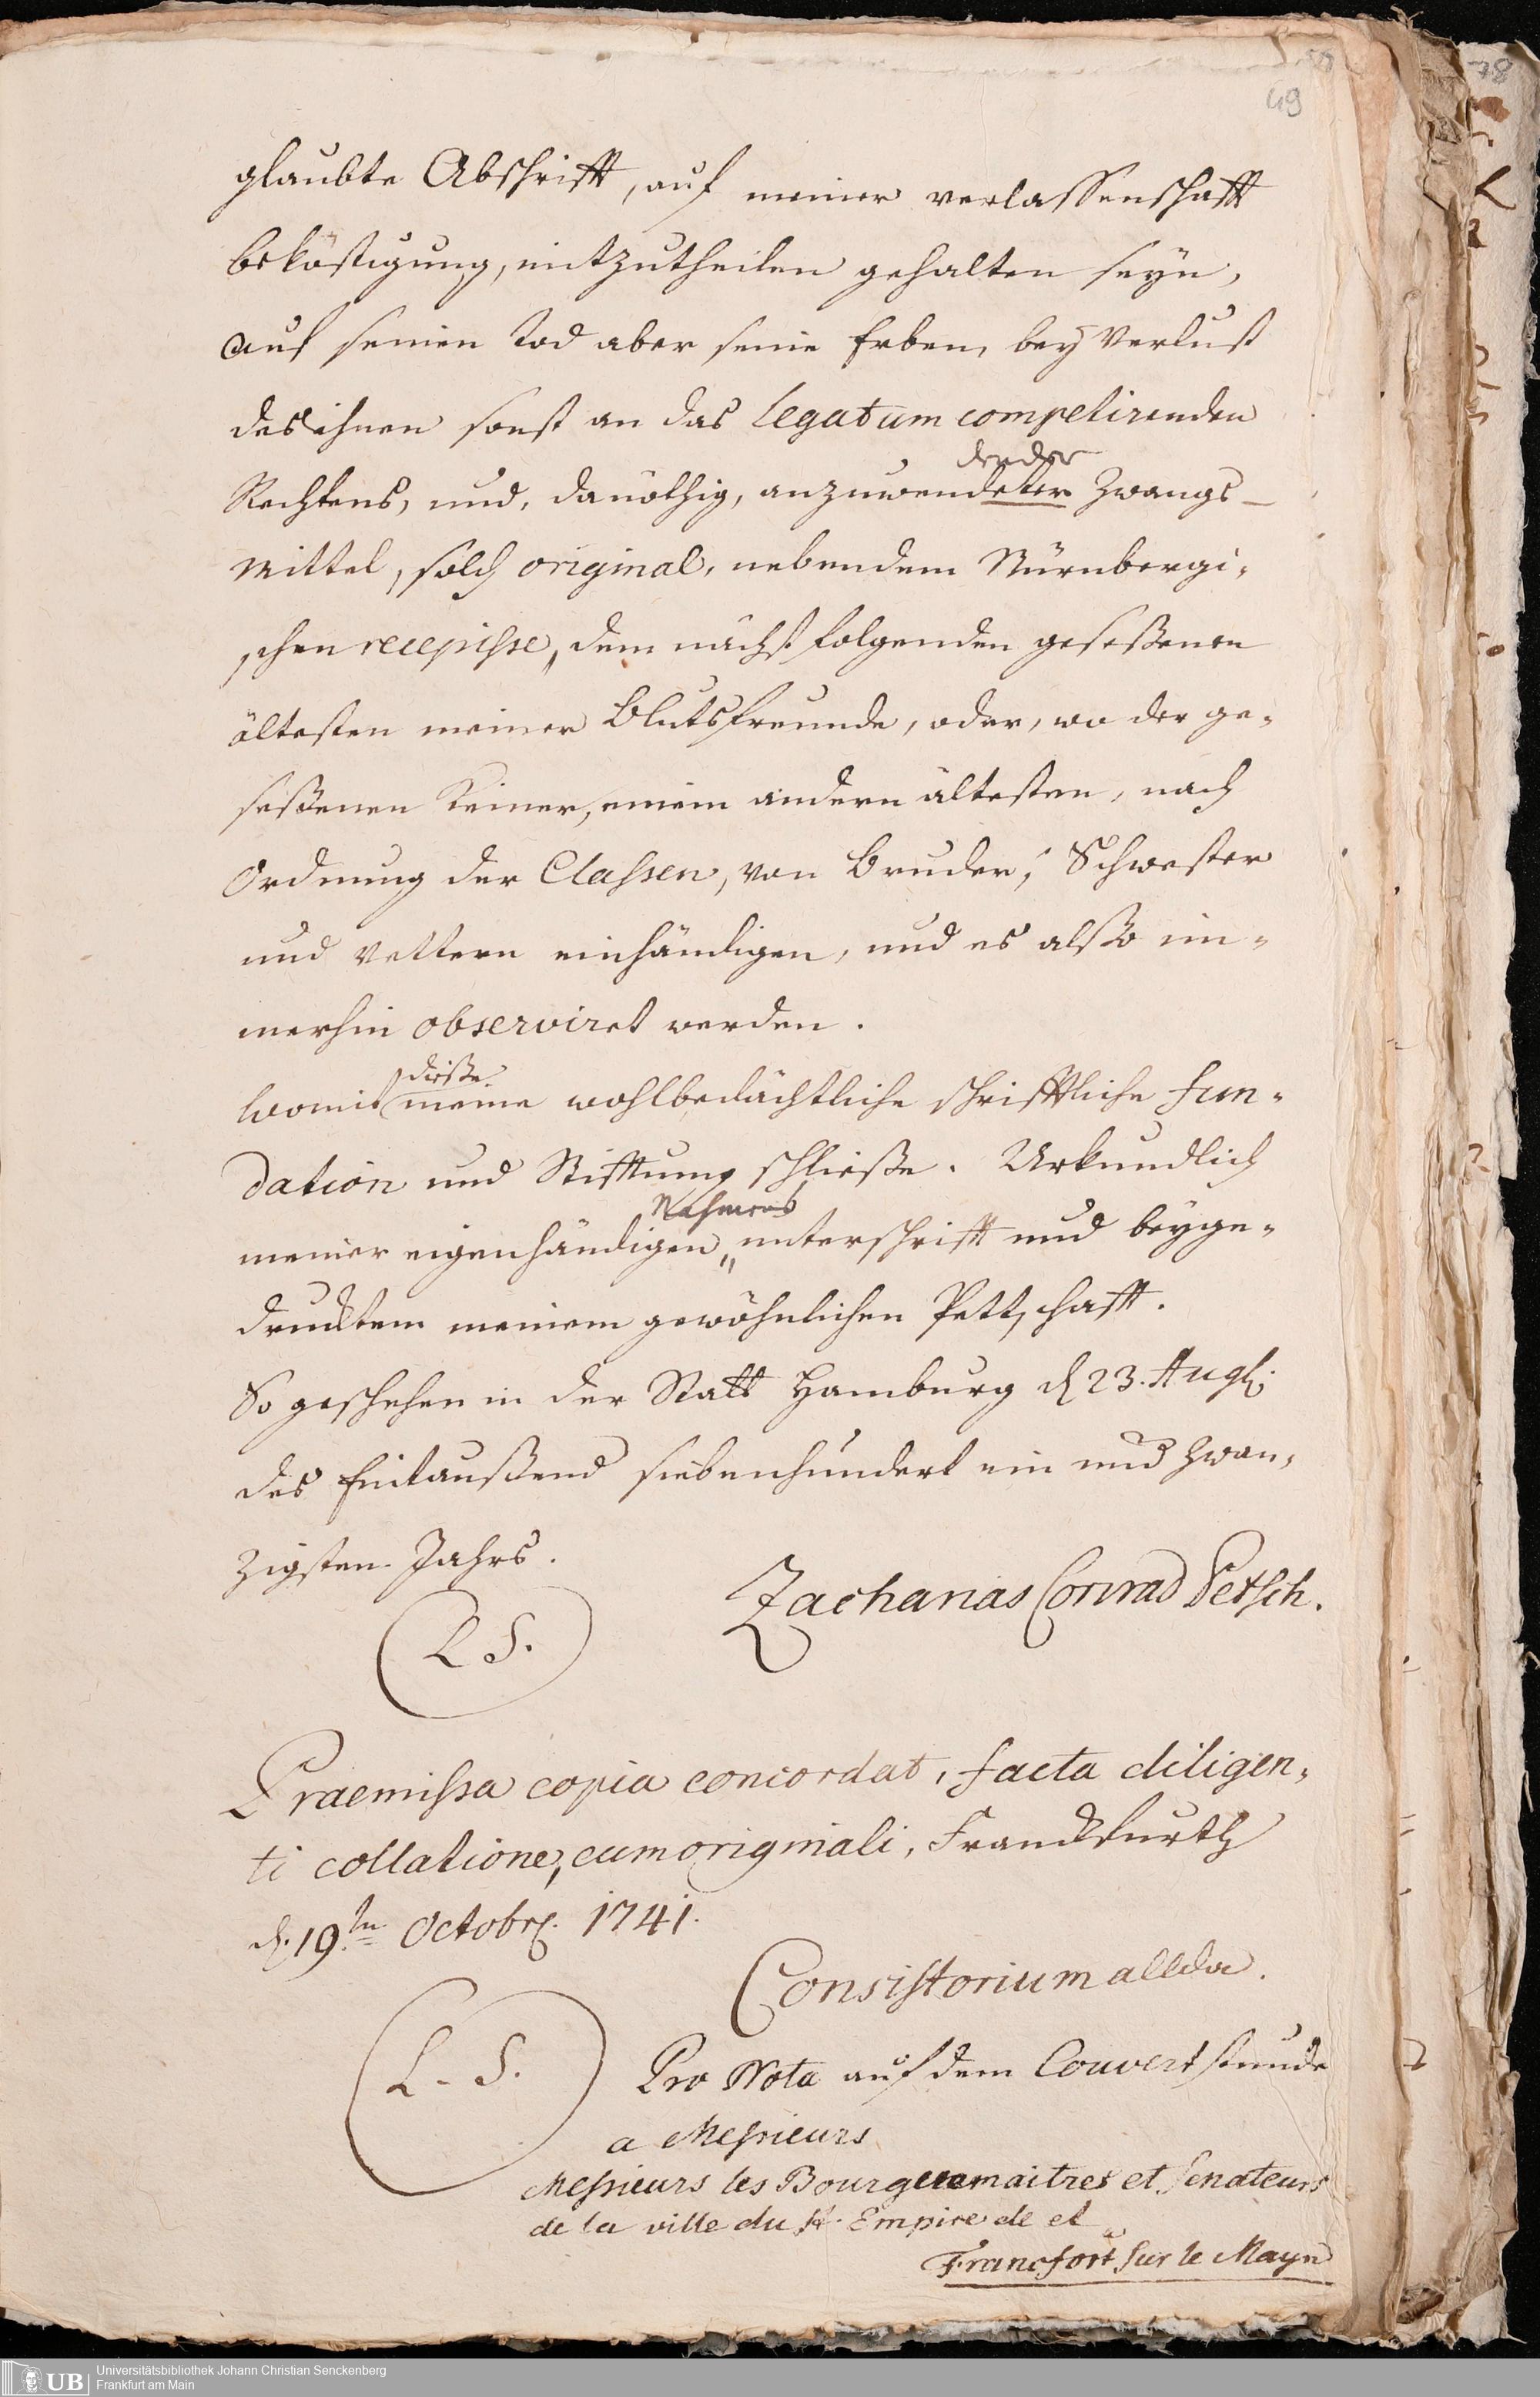 49
glaubte Abschrifft, auf meiner verlassenschafft
beköstigung, mitzutheilen gehalten seyn,
auf seinen Tod aber seine Erben, bey Verlust
des ihnen sonst an das legatum competirenden
Rechtens, und, danöthig, anzuwendeter Zwangs-
mittel, solch original, nebendem Nürnbergi-
schen recepisse, dem nächst folgenden gesessenen
ältesten meiner Blutsfreunde, oder, wo der ge-
sessenen Keiner, einem andern ältesten, nach
Ordnung der Classen, von Bruder, Schwester
und Vettern einhändigen, und es also im-
merhin observiret werden.
dieße
Womit meine wohlbedächtliche schrifftliche fun-
dation und Stifftung schließe. Urkundlich
Nahmens
meiner eigenhändigen unterschrifft und beyge-
drucktem meinem gewöhnlichen Pettschafft.
So geschehen in der Statt Hamburg d 23. Augs.
des Eintaußend siebenhundert ein und zwan-
zigsten Jahrs.
Zacharias Conrad Petsch.
L S.
Praemissa copia concordat, facta diligen-
ti collatione, cum originali, Franckfurth
d. 19.tn Octobr. 1741.
Consistorium allda.
L. S.
Pro Nota auf dem Couvert stunde
a Messieurs
Messieurs les Bourguemaitres et Senateurs
de la ville du St. Empire de et
a
Francfort sur le Mayn
UB
Universitätsbibliothek Johann Christian Senckenberg
Frankfurt am Main